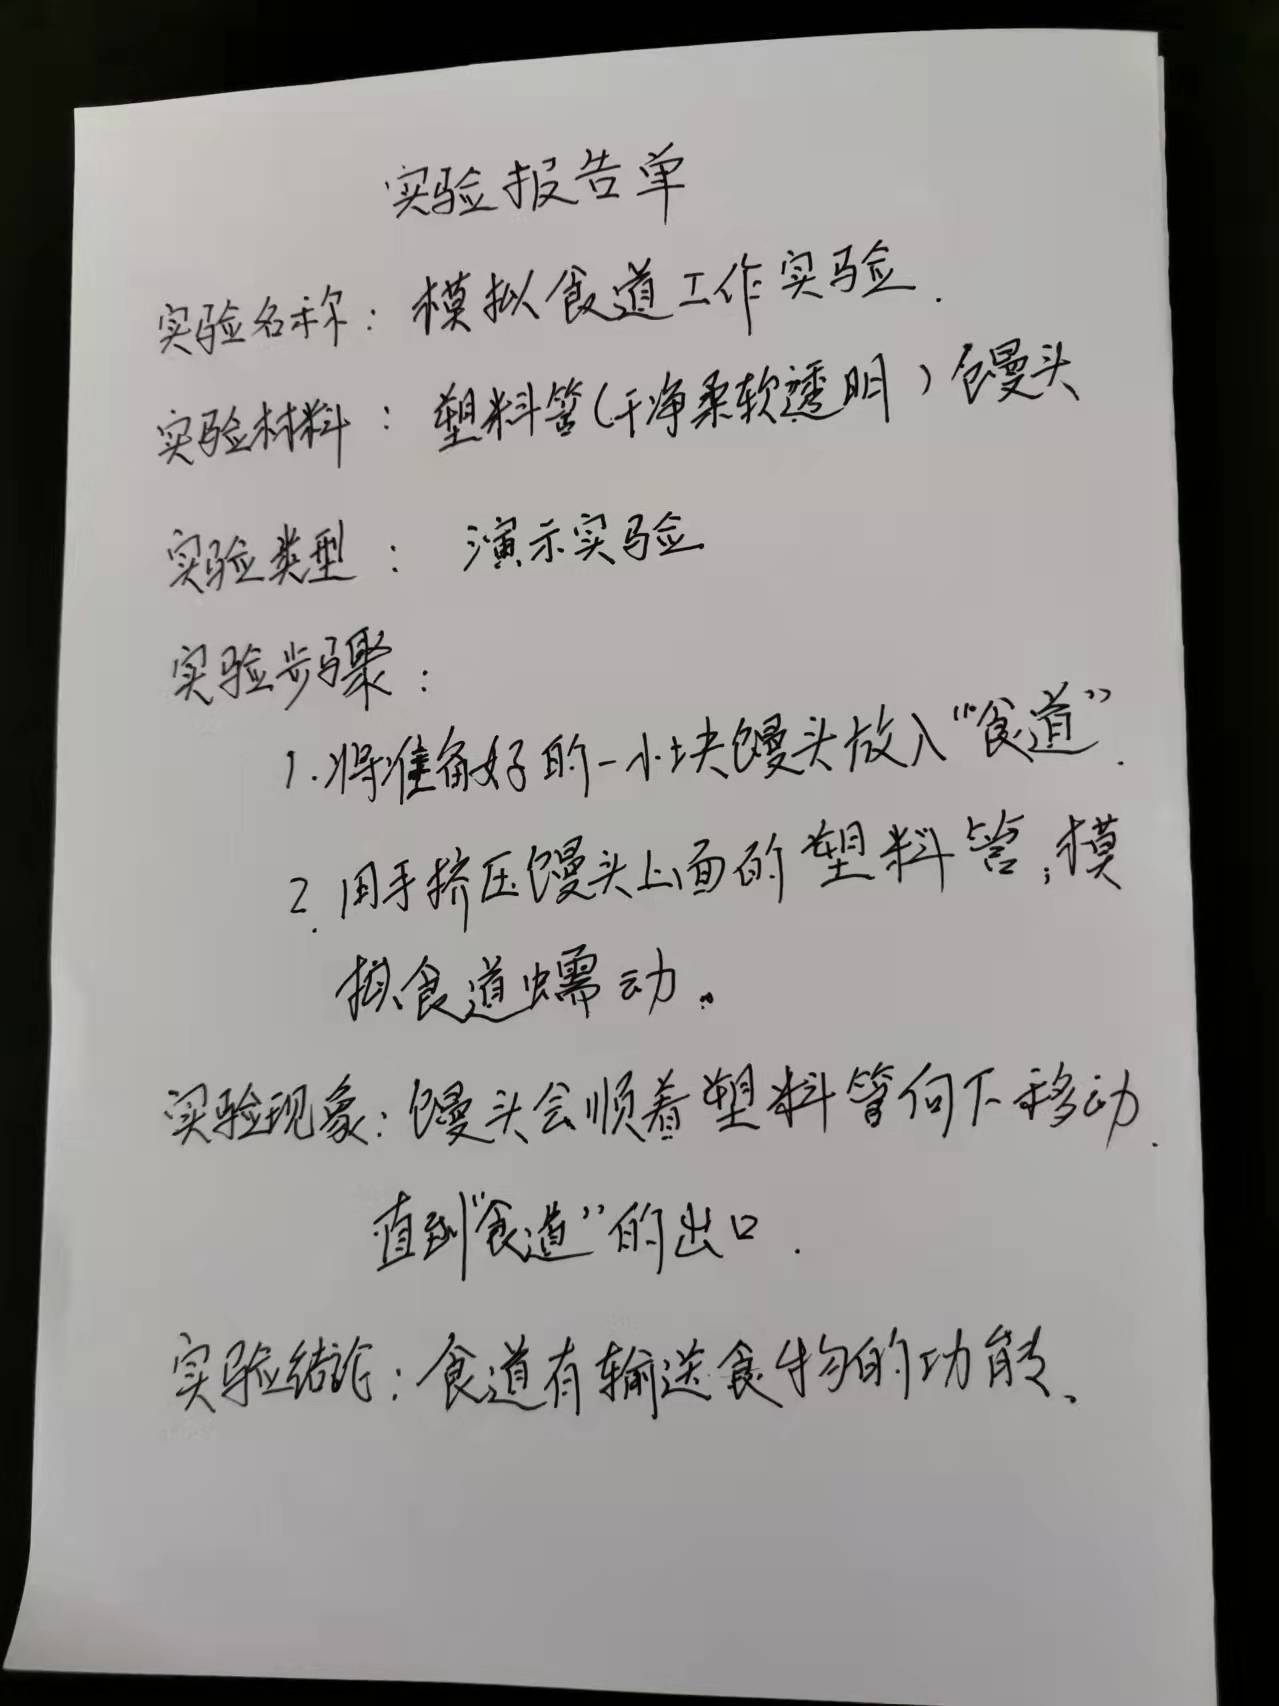 实验报告单
实验名称：模拟食道工作实验.
实验材料：塑料管(干净柔软透明)馒头
实验类型：演示实验.
实验步骤：
1.将准备好的一小块馒头放入“食道”.
2.用手挤压馒头上面的塑料管,模
拟食道蠕动.
实验现象：馒头会顺着塑料管向下移动.
直到“食道”的出口.
实验结论：食道有输送食物的功能、